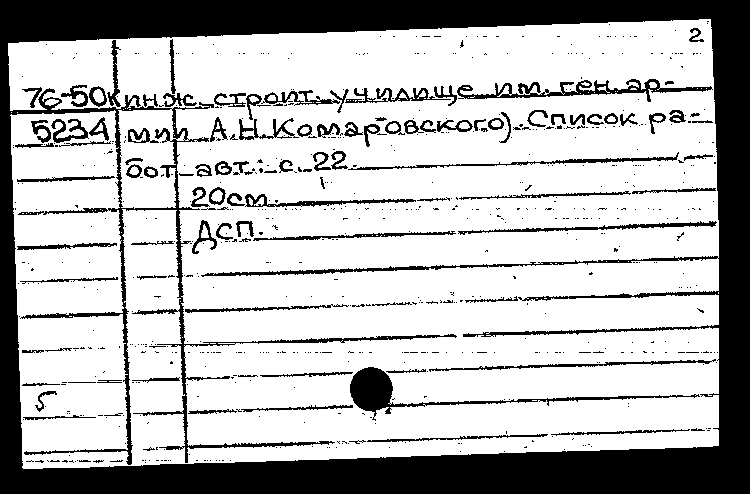 2
76-50к инж. строит. училище им. ген. ар-
5234 мии А.Н. Комаровского). Список ра-
бот авт.: с. 22.
20см.
ДСП.
5